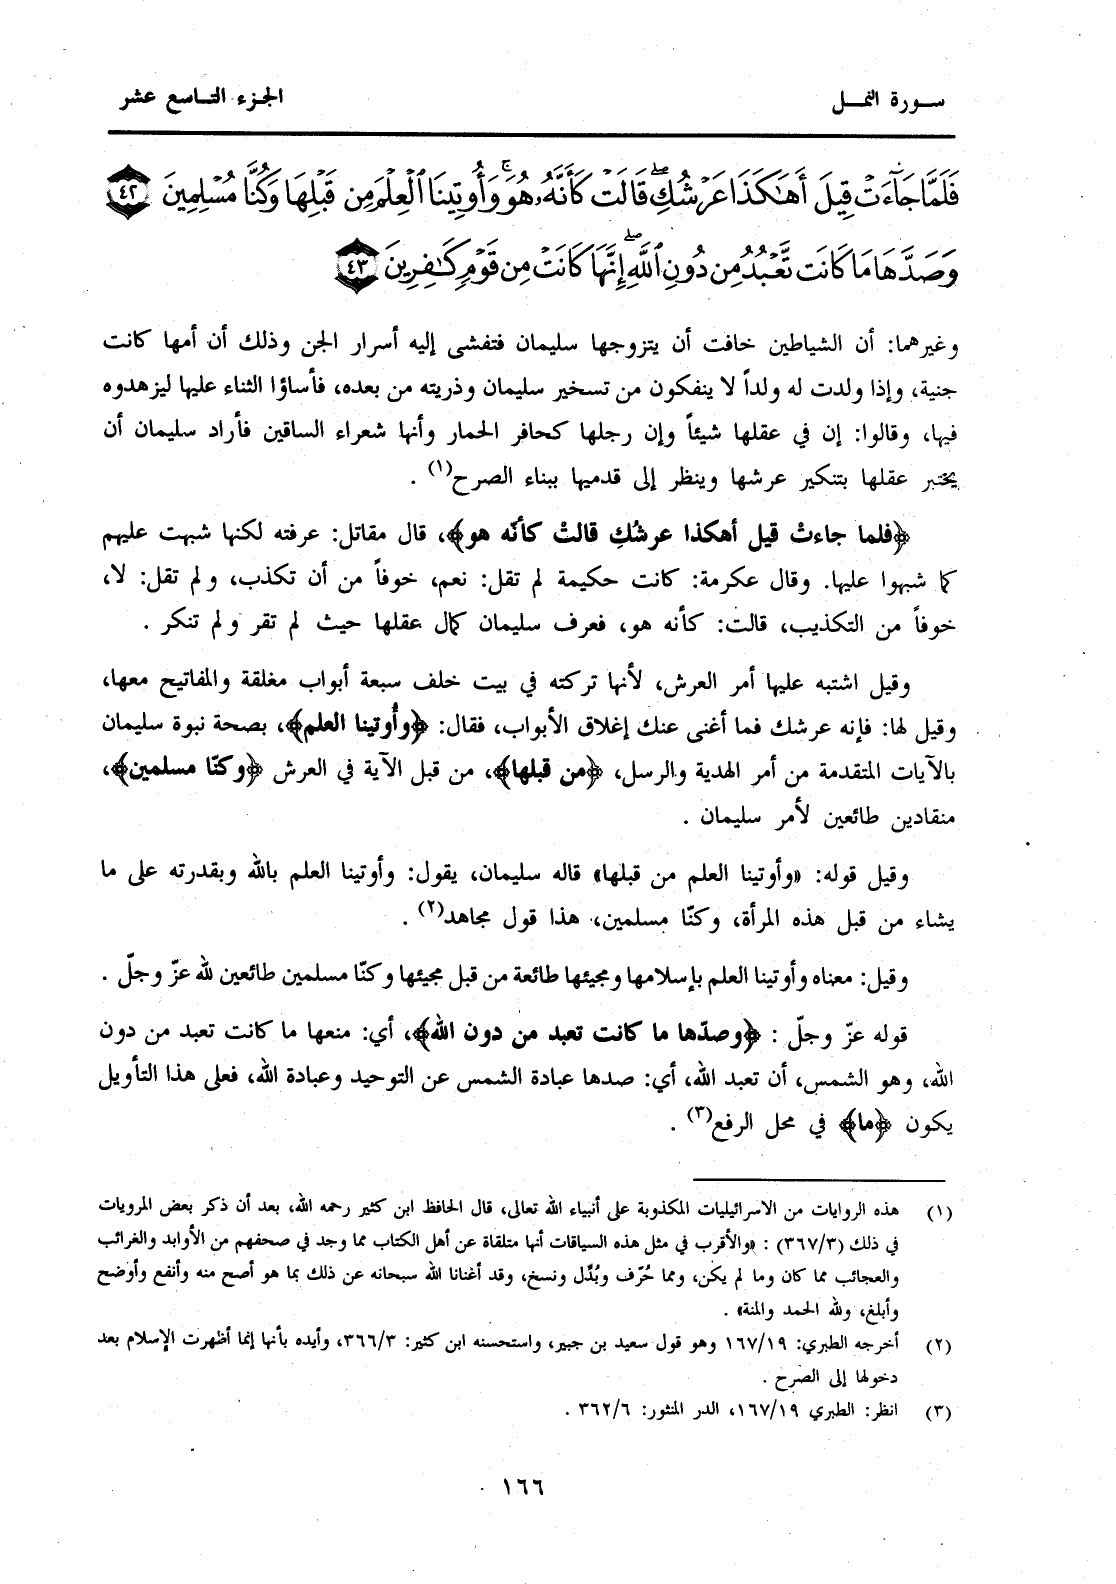 سورة النمل
الجزء التاسع عشر
فَلَمَّا جَآءَتْ قِيلَ أَهَٰكَذَا عَرْشُكِ ۖ قَالَتْ كَأَنَّهُۥ هُوَ ۚ وَأُوتِينَا ٱلْعِلْمَ مِن قَبْلِهَا وَكُنَّا مُسْلِمِينَ ٤٢
وَصَدَّهَا مَا كَانَت تَّعْبُدُ مِن دُونِ ٱللَّهِ ۖ إِنَّهَا كَانَتْ مِن قَوْمٍ كَٰفِرِينَ ٤٣
وغيرهما: أن الشياطين خافت أن يتزوجها سليمان فتفشى إليه أسرار الجن وذلك أن أمها كانت
جنية، وإذا ولدت له ولداً لا ينفكون من تسخير سليمان وذريته من بعده، فأساؤا الثناء عليها ليزهدوه
فيها، وقالوا: إن في عقلها شيئاً وإن رجلها كحافر الحمار وأنها شعراء الساقين فأراد سليمان أن
يختبر عقلها بتنكير عرشها وينظر إلى قدميها ببناء الصرح(١) .
﴿فلما جاءتْ قيل أهكذا عرشُكِ قالتْ كأنّه هو﴾، قال مقاتل: عرفته لكنها شبهت عليهم
كما شبهوا عليها. وقال عكرمة: كانت حكيمة لم تقل: نعم، خوفاً من أن تكذب، ولم تقل: لا،
خوفاً من التكذيب، قالت: كأنه هو، فعرف سليمان كمال عقلها حيث لم تقر ولم تنكر .
وقيل اشتبه عليها أمر العرش، لأنها تركته في بيت خلف سبعة أبواب مغلقة والمفاتيح معها،
وقيل لها: فإنه عرشك فما أغنى عنك إغلاق الأبواب، فقال: ﴿وأُوتينا العلم﴾، بصحة نبوة سليمان
بالآيات المتقدمة من أمر الهدية والرسل، ﴿من قبلها﴾، من قبل الآية في العرش ﴿وكنّا مسلمين﴾،
منقادين طائعين لأمر سليمان .
وقيل قوله: «وأوتينا العلم من قبلها» قاله سليمان، يقول: وأوتينا العلم بالله وبقدرته على ما
يشاء من قبل هذه المرأة، وكنّا مسلمين، هذا قول مجاهد(٢) .
وقيل: معناه وأوتينا العلم بإسلامها ومجيئها طائعة من قبل مجيئها وكنّا مسلمين طائعين لله عزّ وجلّ .
قوله عزّ وجلّ : ﴿وصدّها ما كانت تعبد من دون الله﴾، أي: منعها ما كانت تعبد من دون
الله، وهو الشمس، أن تعبد الله، أي: صدها عبادة الشمس عن التوحيد وعبادة الله، فعلى هذا التأويل
يكون ﴿ما﴾ في محل الرفع(٣) .
(١) هذه الروايات من الاسرائيليات المكذوبة على أنبياء الله تعالى، قال الحافظ ابن كثير رحمه الله، بعد أن ذكر بعض المرويات
في ذلك (٣٦٧/٣) : «والأقرب في مثل هذه السياقات أنها متلقاة عن أهل الكتاب مما وجد في صحفهم من الأوابد والغرائب
والعجائب مما كان وما لم يكن، ومما حُرّف وبُدّل ونسخ، وقد أغنانا الله سبحانه عن ذلك بما هو أصح منه وأنفع وأوضح
وأبلغ، ولله الحمد والمنة» .
(٢) أخرجه الطبري: ١٦٧/١٩ وهو قول سعيد بن جبير، واستحسنه ابن كثير: ٣٦٦/٣، وأيده بأنها إنما أظهرت الإسلام بعد
دخولها إلى الصرح .
(٣) انظر: الطبري ١٦٧/١٩، الدر المنثور: ٣٦٢/٦ .
١٦٦